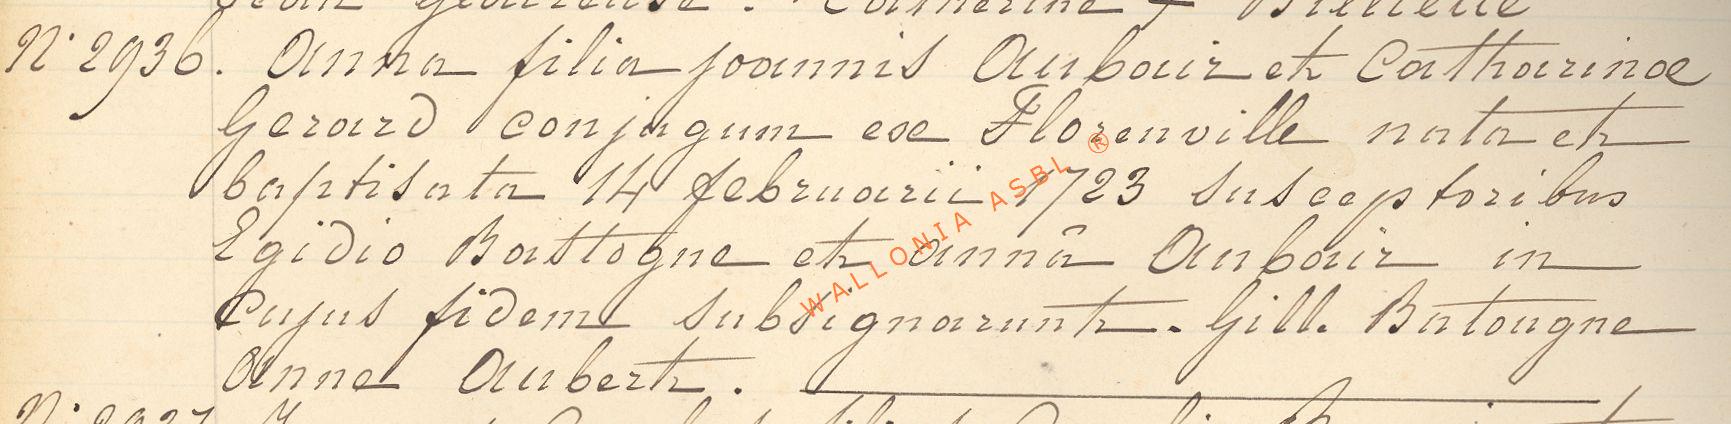 N° 2936. Anna filia joannis Aubair et Catharinae
Gerard conjugum ex Florenville nata et
baptisata 14 februarii 1723 susceptoribus
Egidio Bastogne et annâ Aubair in
cujus fidem subsignarunt. Gill. Batougne
Anne Aubert.
WALLONIA ASBL ®
N° 2937